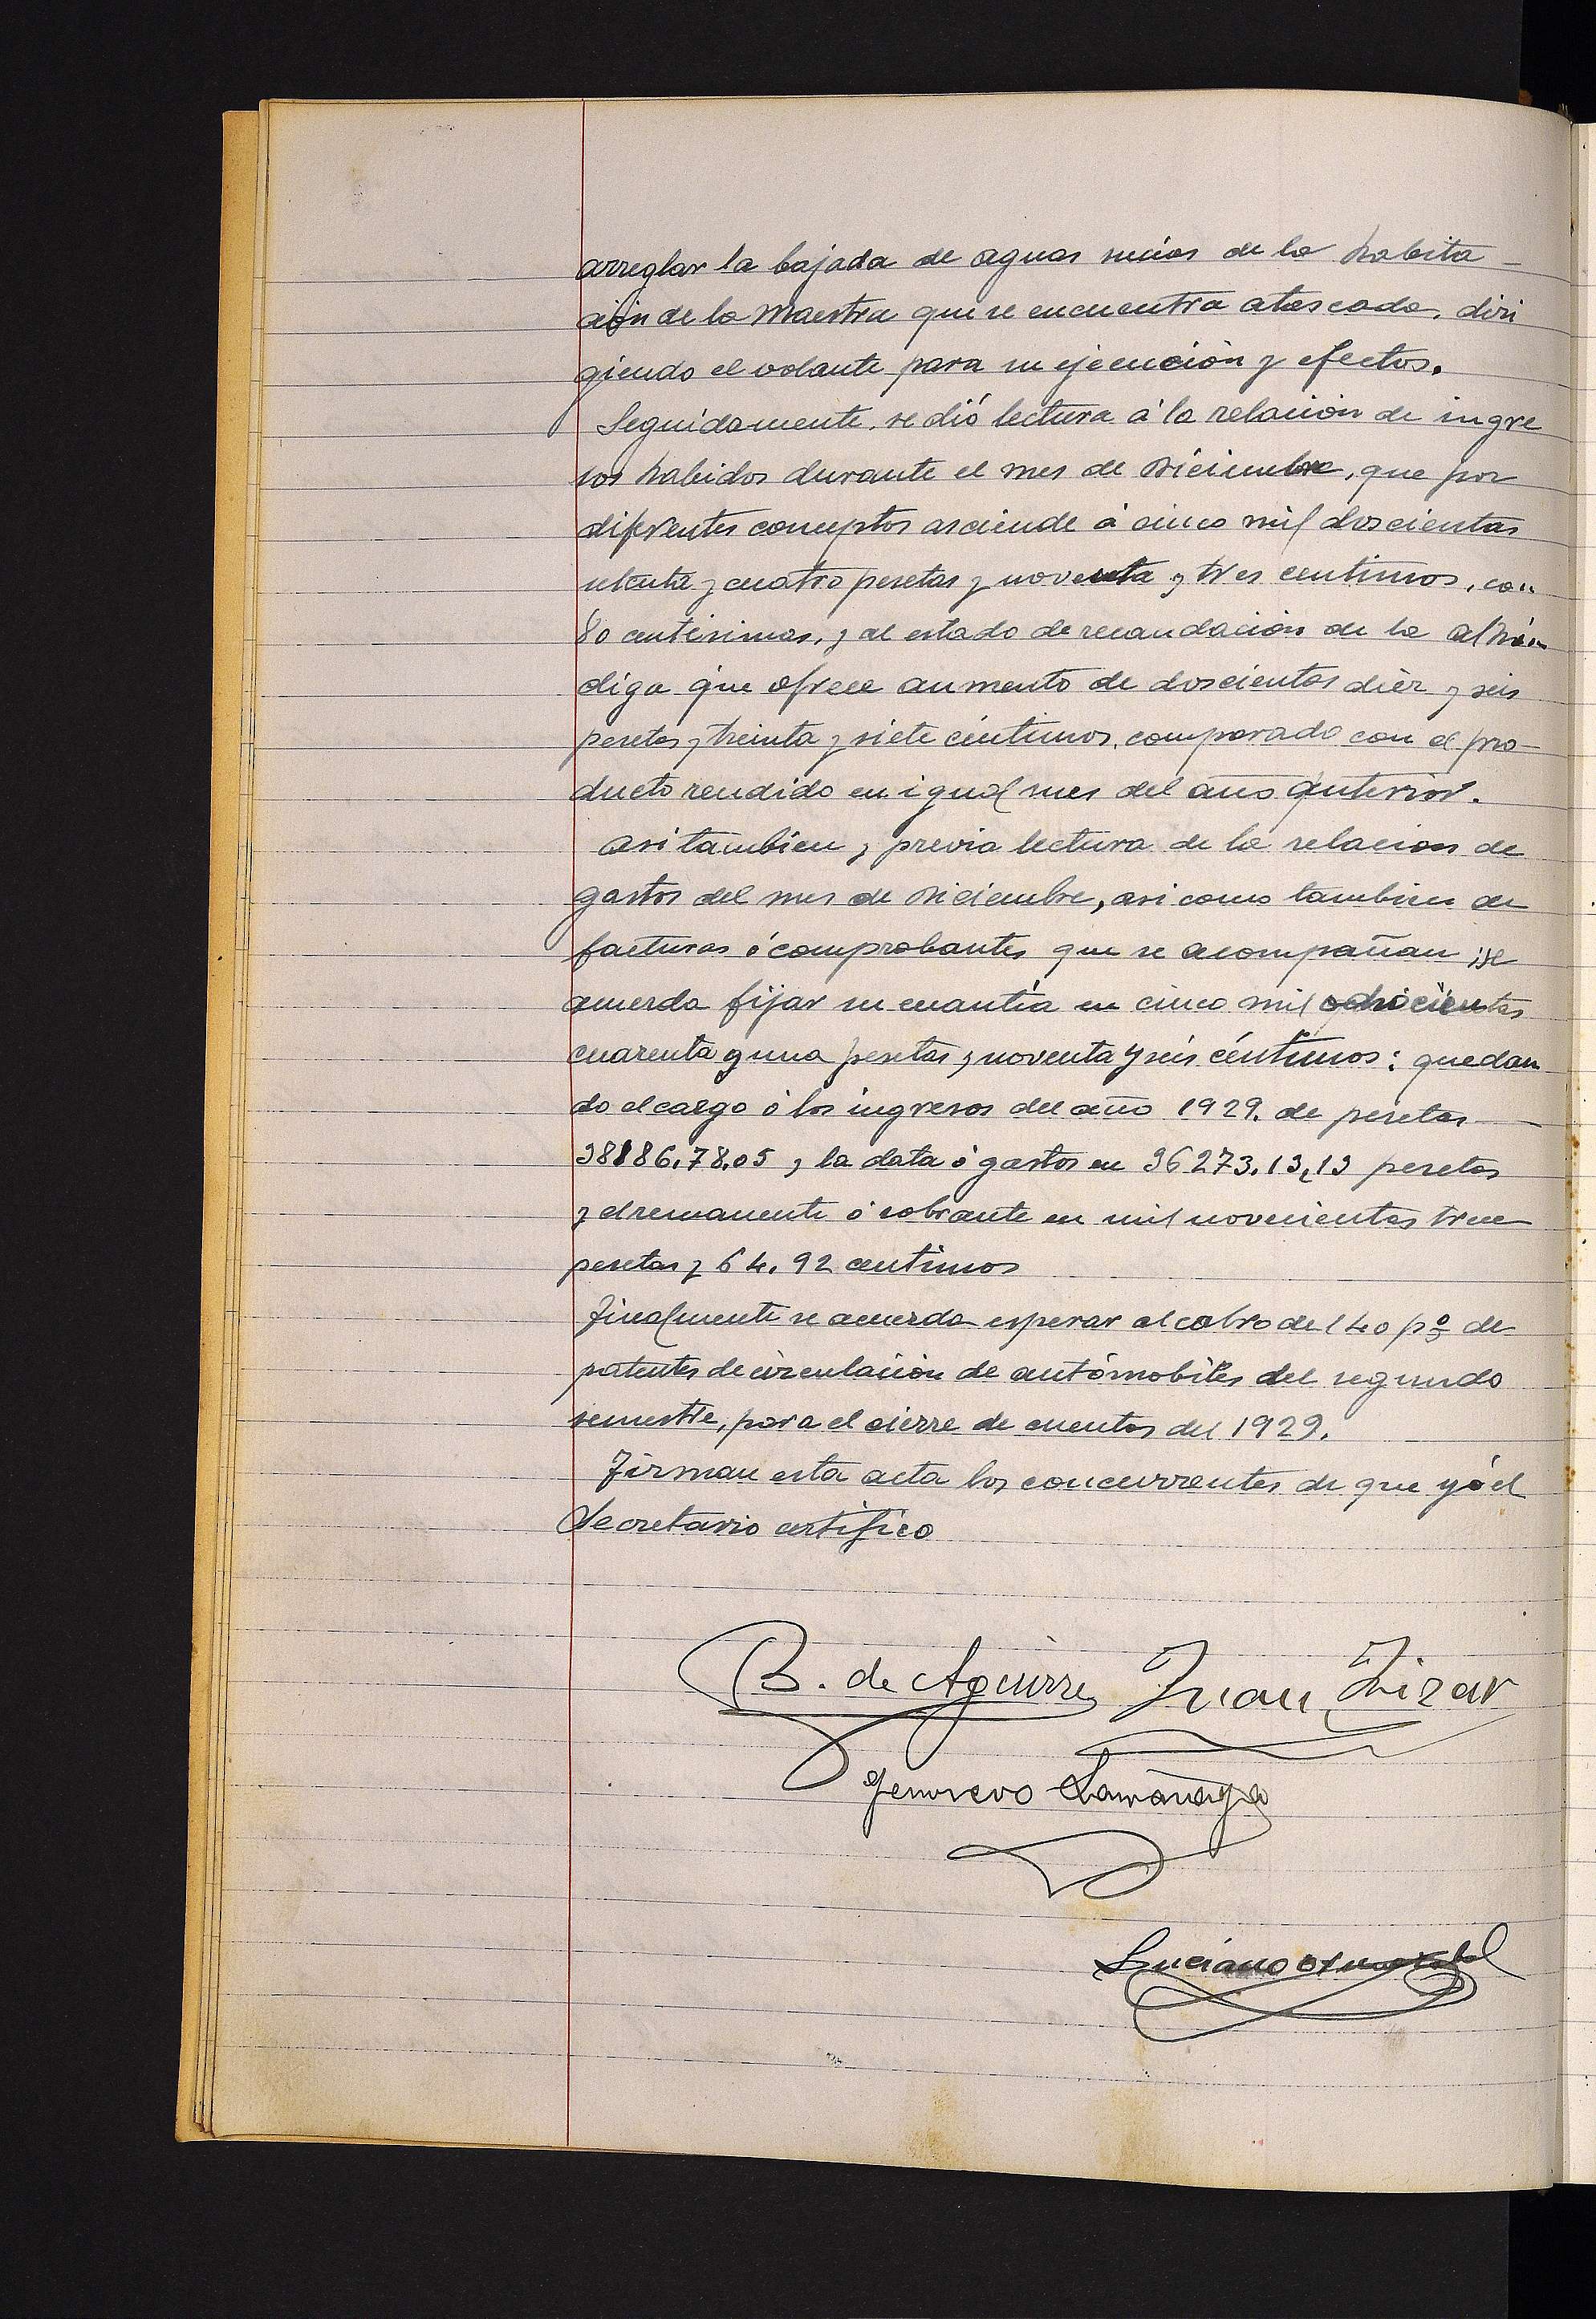 arreglar la bajada de aguas sucias de la habita-
ción de la Maestra que se encuentra atascada, diri
giendo el volante para su ejecución y efectos.
Seguidamente, se dió lectura á la relación de ingre
sos habidos durante el mes de Diciembre, que por
diferentes conceptos asciende á cinco mil doscientas
setenta y cuatro pesetas y noventa y tres centimos, con
80 centésimas, y al estado de recaudación de la alhón
diga que ofrece aumento de doscientas diez y seis
pesetas y treinta y siete céntimos, comparado con el pro-
ducto rendido en igual mes del año anterior.
Asi tambien y previa lectura de la relacion de
gastos del mes de Diciembre, asi como tambien de
facturas ó comprobantes que se acompañan se
acuerda fijar su cuantía en cinco mil ochocientas
cuarenta y una pesetas y noventa y seis céntimos: quedan
do el cargo ó los ingresos del año 1929. de pesetas
38186.78.05 y la data ó gastos en 36273.13,13 pesetas
y el remanente ó sobrante en mil novecientas trece
pesetas y 64.92 centimos
Finalmente se acuerda esperar al cobro del 40 pº de
patentes de circulación de automobiles del segundo
semestre, para el cierre de cuentas del 1929.
Firman esta acta los concurrentes de que yó el
Secretario certifico
B. de Aguirre Juan Lizar
Genovevo
Luciano